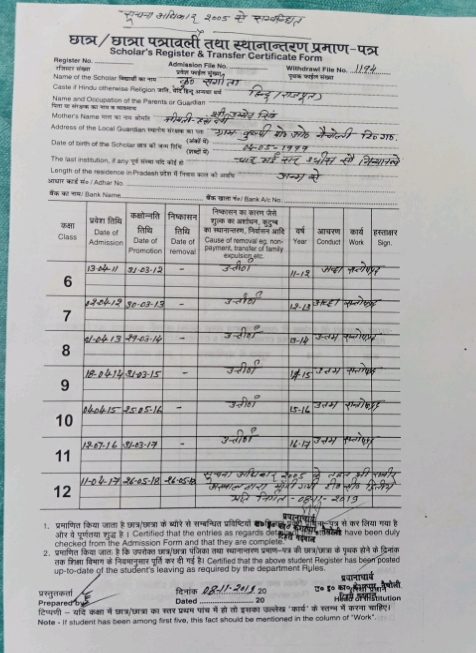 सूचना अधिकार 2005 से सम्बन्धित
छात्र / छात्रा पत्रावली तथा स्थानान्तरण प्रमाण-पत्र
Scholar's Register & Transfer Certificate Form
Register No. Admission File No. Withdrawl File No. 1194
रजिस्टर संख्या प्रवेश फाईल संख्या पृथक फाईल संख्या
Name of the Scholar विद्यार्थी का नाम कु०
Caste if Hindu otherwise Religion जाति, यदि हिन्दु अन्यथा धर्म हिन्दू (राजपूत)
Name and Occupation of the Parents or Guardian
पिता या संरक्षक का नाम व व्यवसाय
Mother's Name माता का नाम श्रीमती
Address of the Local Guardian स्थानीय संरक्षक का पता ग्राम पो० ओ० नैचोली टि० ग०
Date of birth of the Scholar छात्र की जन्म तिथि (अंकों में) 04-05-1999
(शब्दों में) चार मई सन्
The last institution, if any पूर्व संस्था यदि कोई हो
Length of the residence in Pradesh प्रदेश में निवास काल की अवधि जन्म से
आधार कार्ड सं० / Adhar No.
बैंक का नाम/ Bank Name बैंक खाता नं०/ Bank A/c No.
कक्षा Class प्रवेश तिथि Date of Admission कक्षोन्नति तिथि Date of Promotion निष्कासन तिथि Date of removal निष्कासन का कारण जैसे शुल्क का अशोधन, कुटुम्ब का स्थानान्तरण, निर्वासन आदि Cause of removal eg. non-payment, transfer of family expulsion etc. वर्ष Year आचरण Conduct कार्य Work हस्ताक्षर Sign.
6 13-04-11 31-03-12 - उत्तीर्ण 11-12 अच्छा सन्तोषप्रद
7 02-04-12 30-03-13 - उत्तीर्ण 12-13 अच्छा सन्तोषप्रद
8 01-04-13 29-03-14 - उत्तीर्ण 13-14 उत्तम सन्तोषप्रद
9 18-04-14 31-03-15 - उत्तीर्ण 14-15 उत्तम सन्तोषप्रद
10 04-04-15 25-05-16 - उत्तीर्ण 15-16 उत्तम सन्तोषप्रद
11 12-07-16 31-03-17 - उत्तीर्ण 16-17 उत्तम सन्तोषप्रद
12 11-04-17 26-05-18 26-05-18 सूचना अधिकार 2005 के तहत श्री
द्वारा मांगी गयी टी० सी० द्वितीय
प्रति निर्गत - 08-11-2019
प्रधानाचार्य
1. प्रमाणित किया जाता है छात्र/छात्रा के ब्योरे से सम्बन्धित प्रविष्टियाँ पत्र से कर लिया गया है
और वे पूर्णतया शुद्ध है। I Certified that the entries as regards have been duly
checked from the Admission Form and that they are complete.
2. प्रमाणित किया जाता है कि उपरोक्त छात्र/छात्रा पंजिका तथा स्थानान्तरण प्रमाण-पत्र की छात्र/छात्रा के पृथक होने के दिनांक
तक शिक्षा विभाग के नियमानुसार पूर्ति कर दी गई है। Certified that the above student Register has been posted
up-to-date of the student's leaving as required by the department Rules.
प्रधानाचार्य
प्रस्तुतकर्ता दिनांक 08-11-2019 20
Prepared by Dated 20 Head of Institution
टिप्पणी - यदि कक्षा में छात्र/छात्रा का स्तर प्रथम पांच में हो तो इसका उल्लेख "कार्य" के स्तम्भ में करना चाहिए।
Note - If student has been among first five, this fact should be mentioned in the column of "Work".